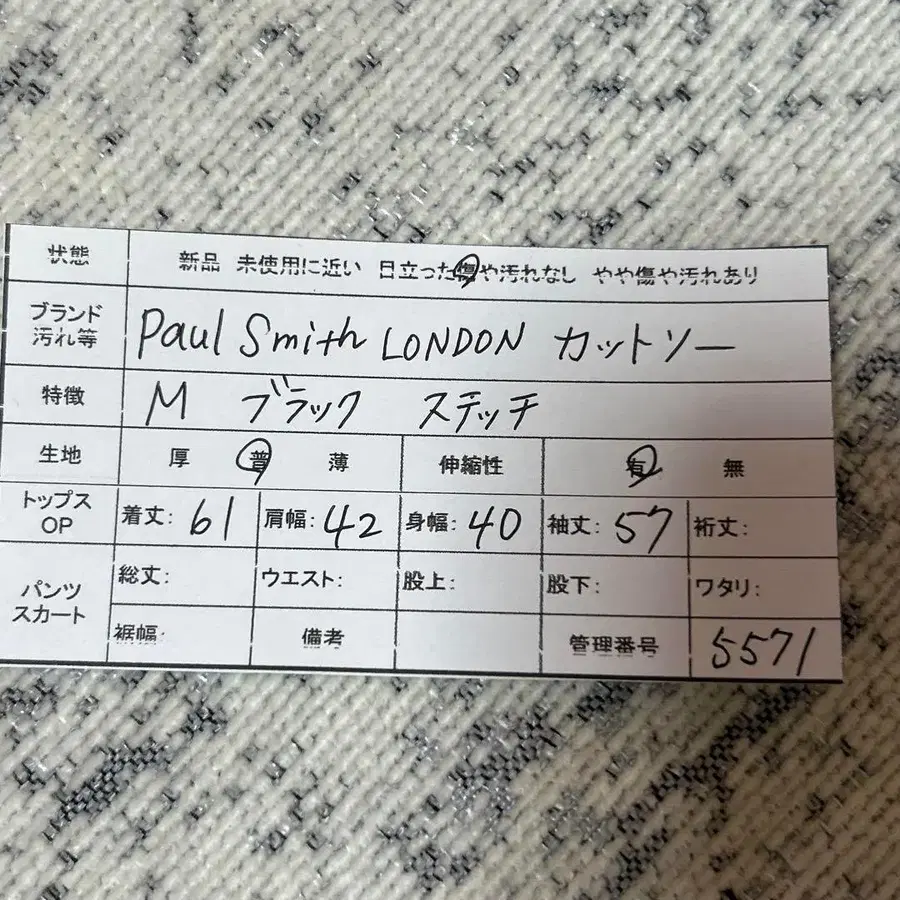 状態 新品 未使用に近い 目立った傷や汚れなし やや傷や汚れあり
ブランド
汚れ等 Paul Smith LONDON カットソー
特徴 M ブラック ステッチ
生地 厚 普 薄 伸縮性 有 無
トップス
OP 着丈: 61 肩幅: 42 身幅: 40 袖丈: 57 裄丈:
パンツ
スカート 総丈: ウエスト: 股上: 股下: ワタリ:
裾幅: 備考 管理番号 5571